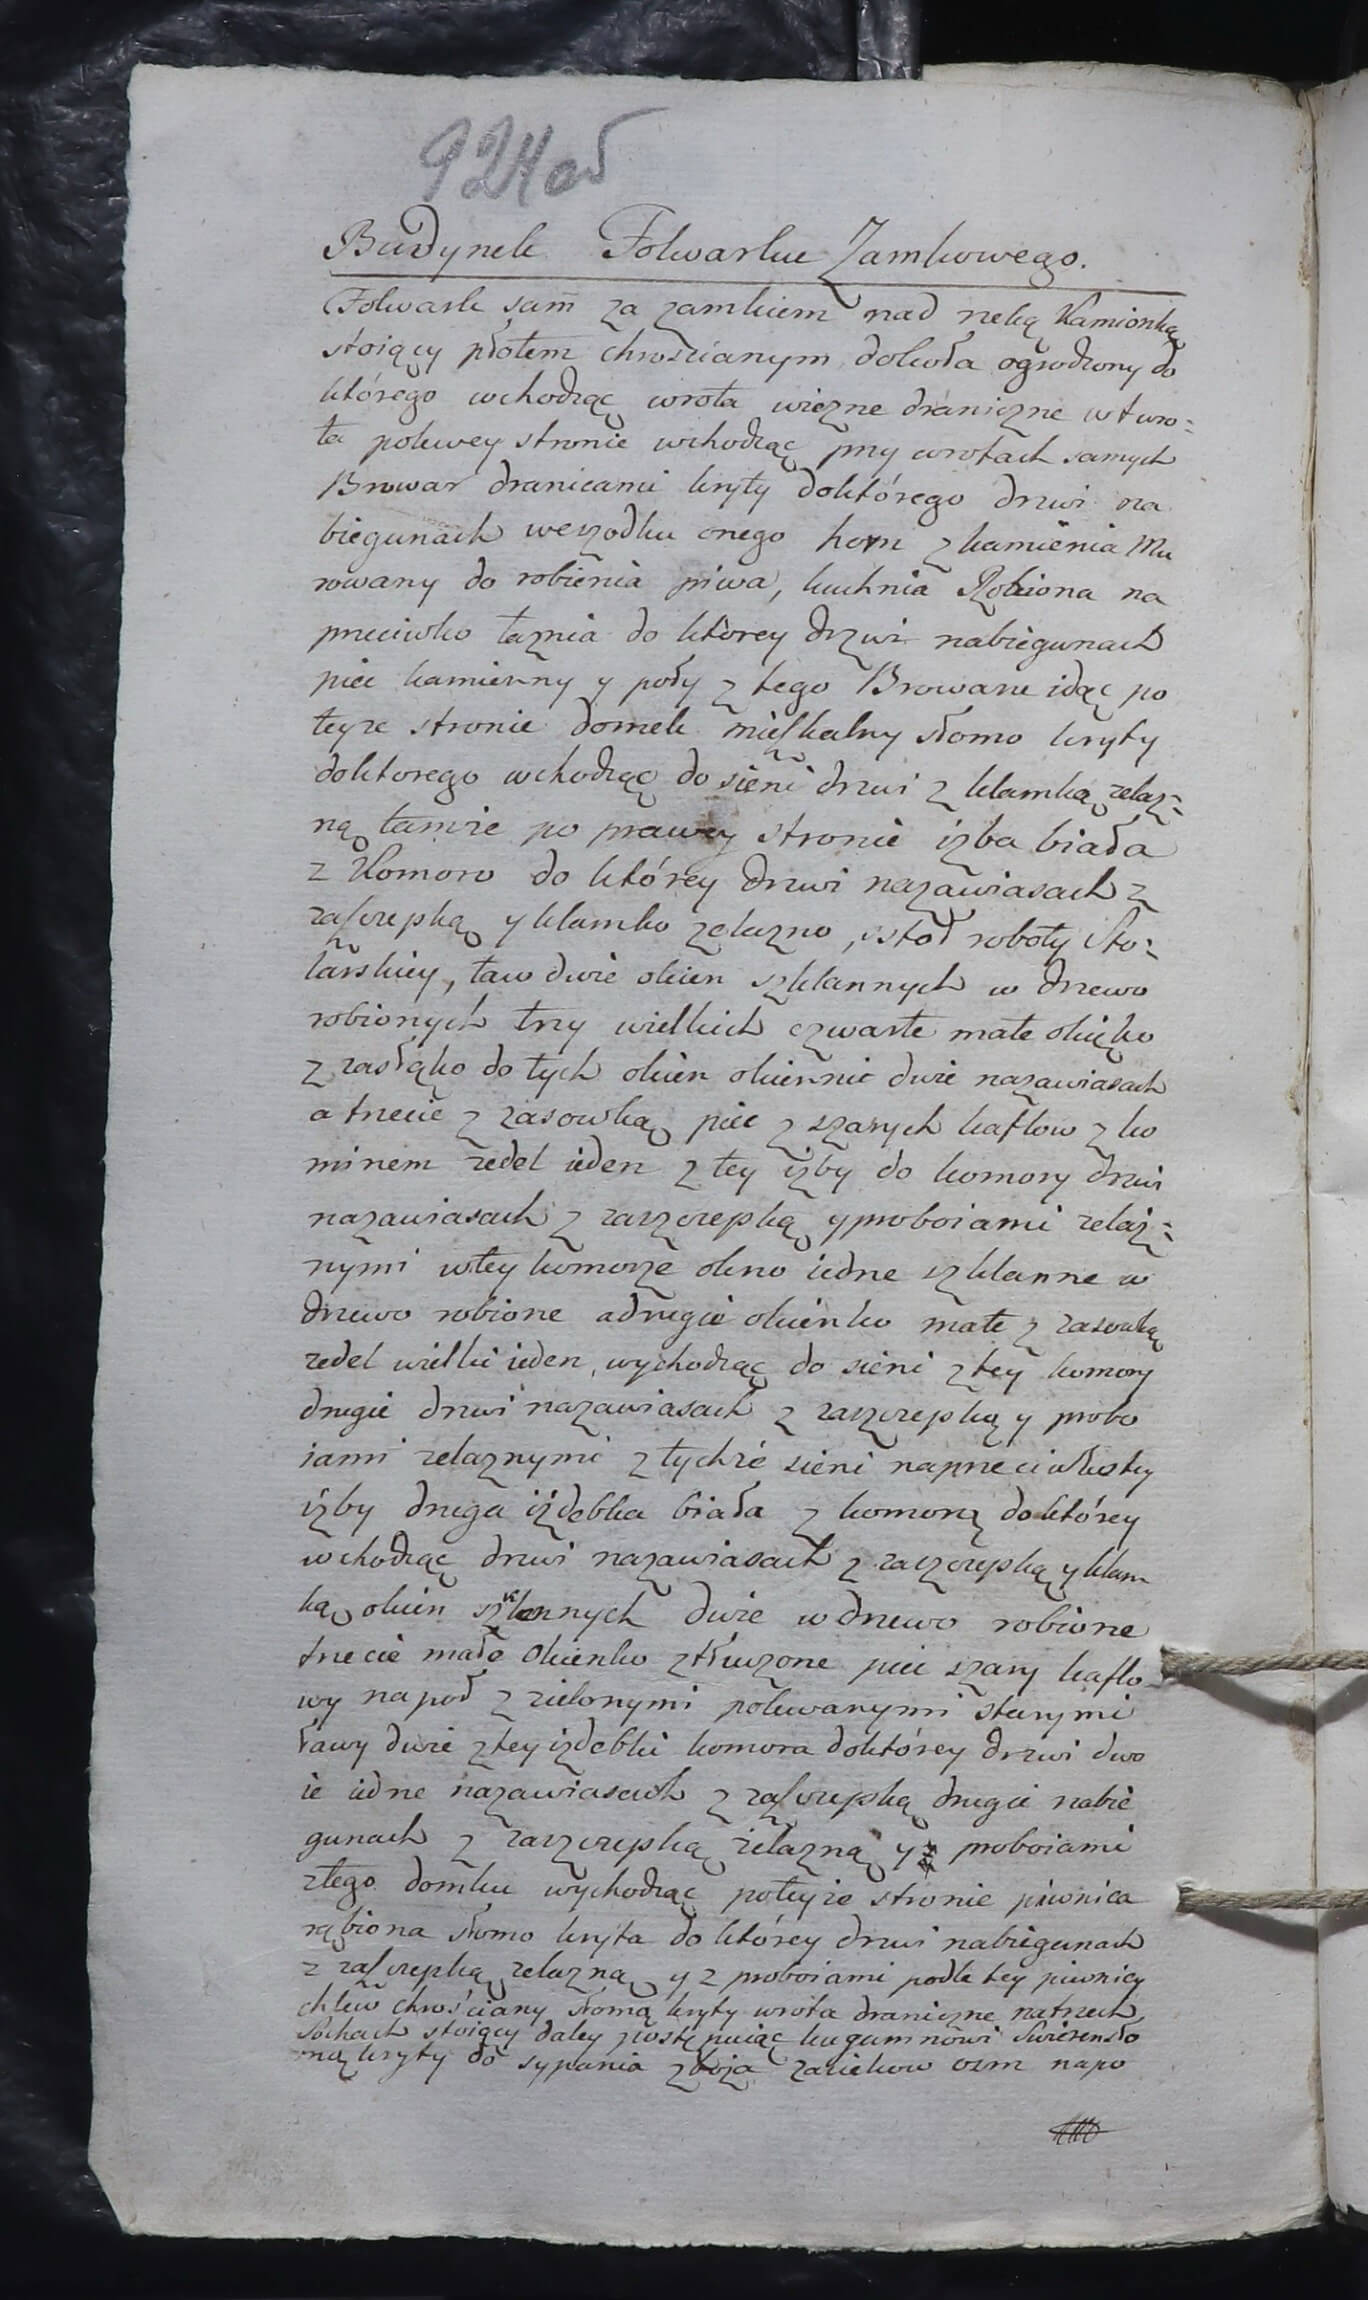 924 об
Budynek Folwarku Zamkowego.
Folwark sam za zamkiem nad rzeką Kamionką
stoiący płotem chrościanym dokoła ogrodzony do
którego wchodząc wrota wiezne draniczne w t wro=
ta polewey stronie wchodząc przy wrotach samych
Browar dranicami kryty doktórego drzwi na
biegunach weszodku onego horn z kamienia Mu
rowany do robienia piwa, kuchnia Robiona na
przeciwko łaznia do ktorey drzwi nabiegunach
piec kamienny y poły z tego Browaru idąc po
teyze stronie domek mieszkalny słomo kryty
doktorego wchodząc do sieni drzwi z klamką zelaz=
ną tamze po prawey stronie izba biała
z Komoro do którey drzwi nazawiasach z
zaszczepką y klamko zelazno, stoł roboty Sto=
larskiey, ław dwie okien szklannych w drzewo
robionych trzy wielkich czwarte małe okięko
z zasłąko do tych okien okiennic dwie nazawiasach
a trzecie z zasowką piec z szarych kaflow z ko
minem zedel ieden z tey izby do komory drzwi
nazawiasach z zaszczepką yproboiami zelaz=
nymi wtey komorze okno iedne szklanne w
drzewo robione adrugie okienko małe z zasowką
zedel wielki ieden, wychodząc do sieni z tey komory
drugie drzwi nazawiasach z zaszczepką y probo
iami zelaznymi z tychże sieni naprzeciwko tey
izby druga izdebka biała z komorą doktórey
wchodząc drzwi nazawiasach z zaszczepką yklam
ką okien szklannych dwie wdrzewo robione
trzecie małe Okienko ztłuczone piec szary kaflo
wy napoł z zielonymi polewanymi starymi
ławy dwie ztey izdebki komora doktórey drzwi dwo
ie iedne nazawiasach z zaszczepką drugie nabie
gunach z zaszczepką żelazną y proboiami
ztego domku wychodząc poteyze stronie piwnica
rąbiona słomo kryta do którey drzwi nabiegunach
z zaszczepką zelazną y z proboiami podle tey piwnicy
chlew chrościany słomą kryty wrota draniczne natrzech
Sochach stoiący daley postępuiąc kugumnowi Swiren sło
mą kryty do sypania zboża zasiekow osm napo